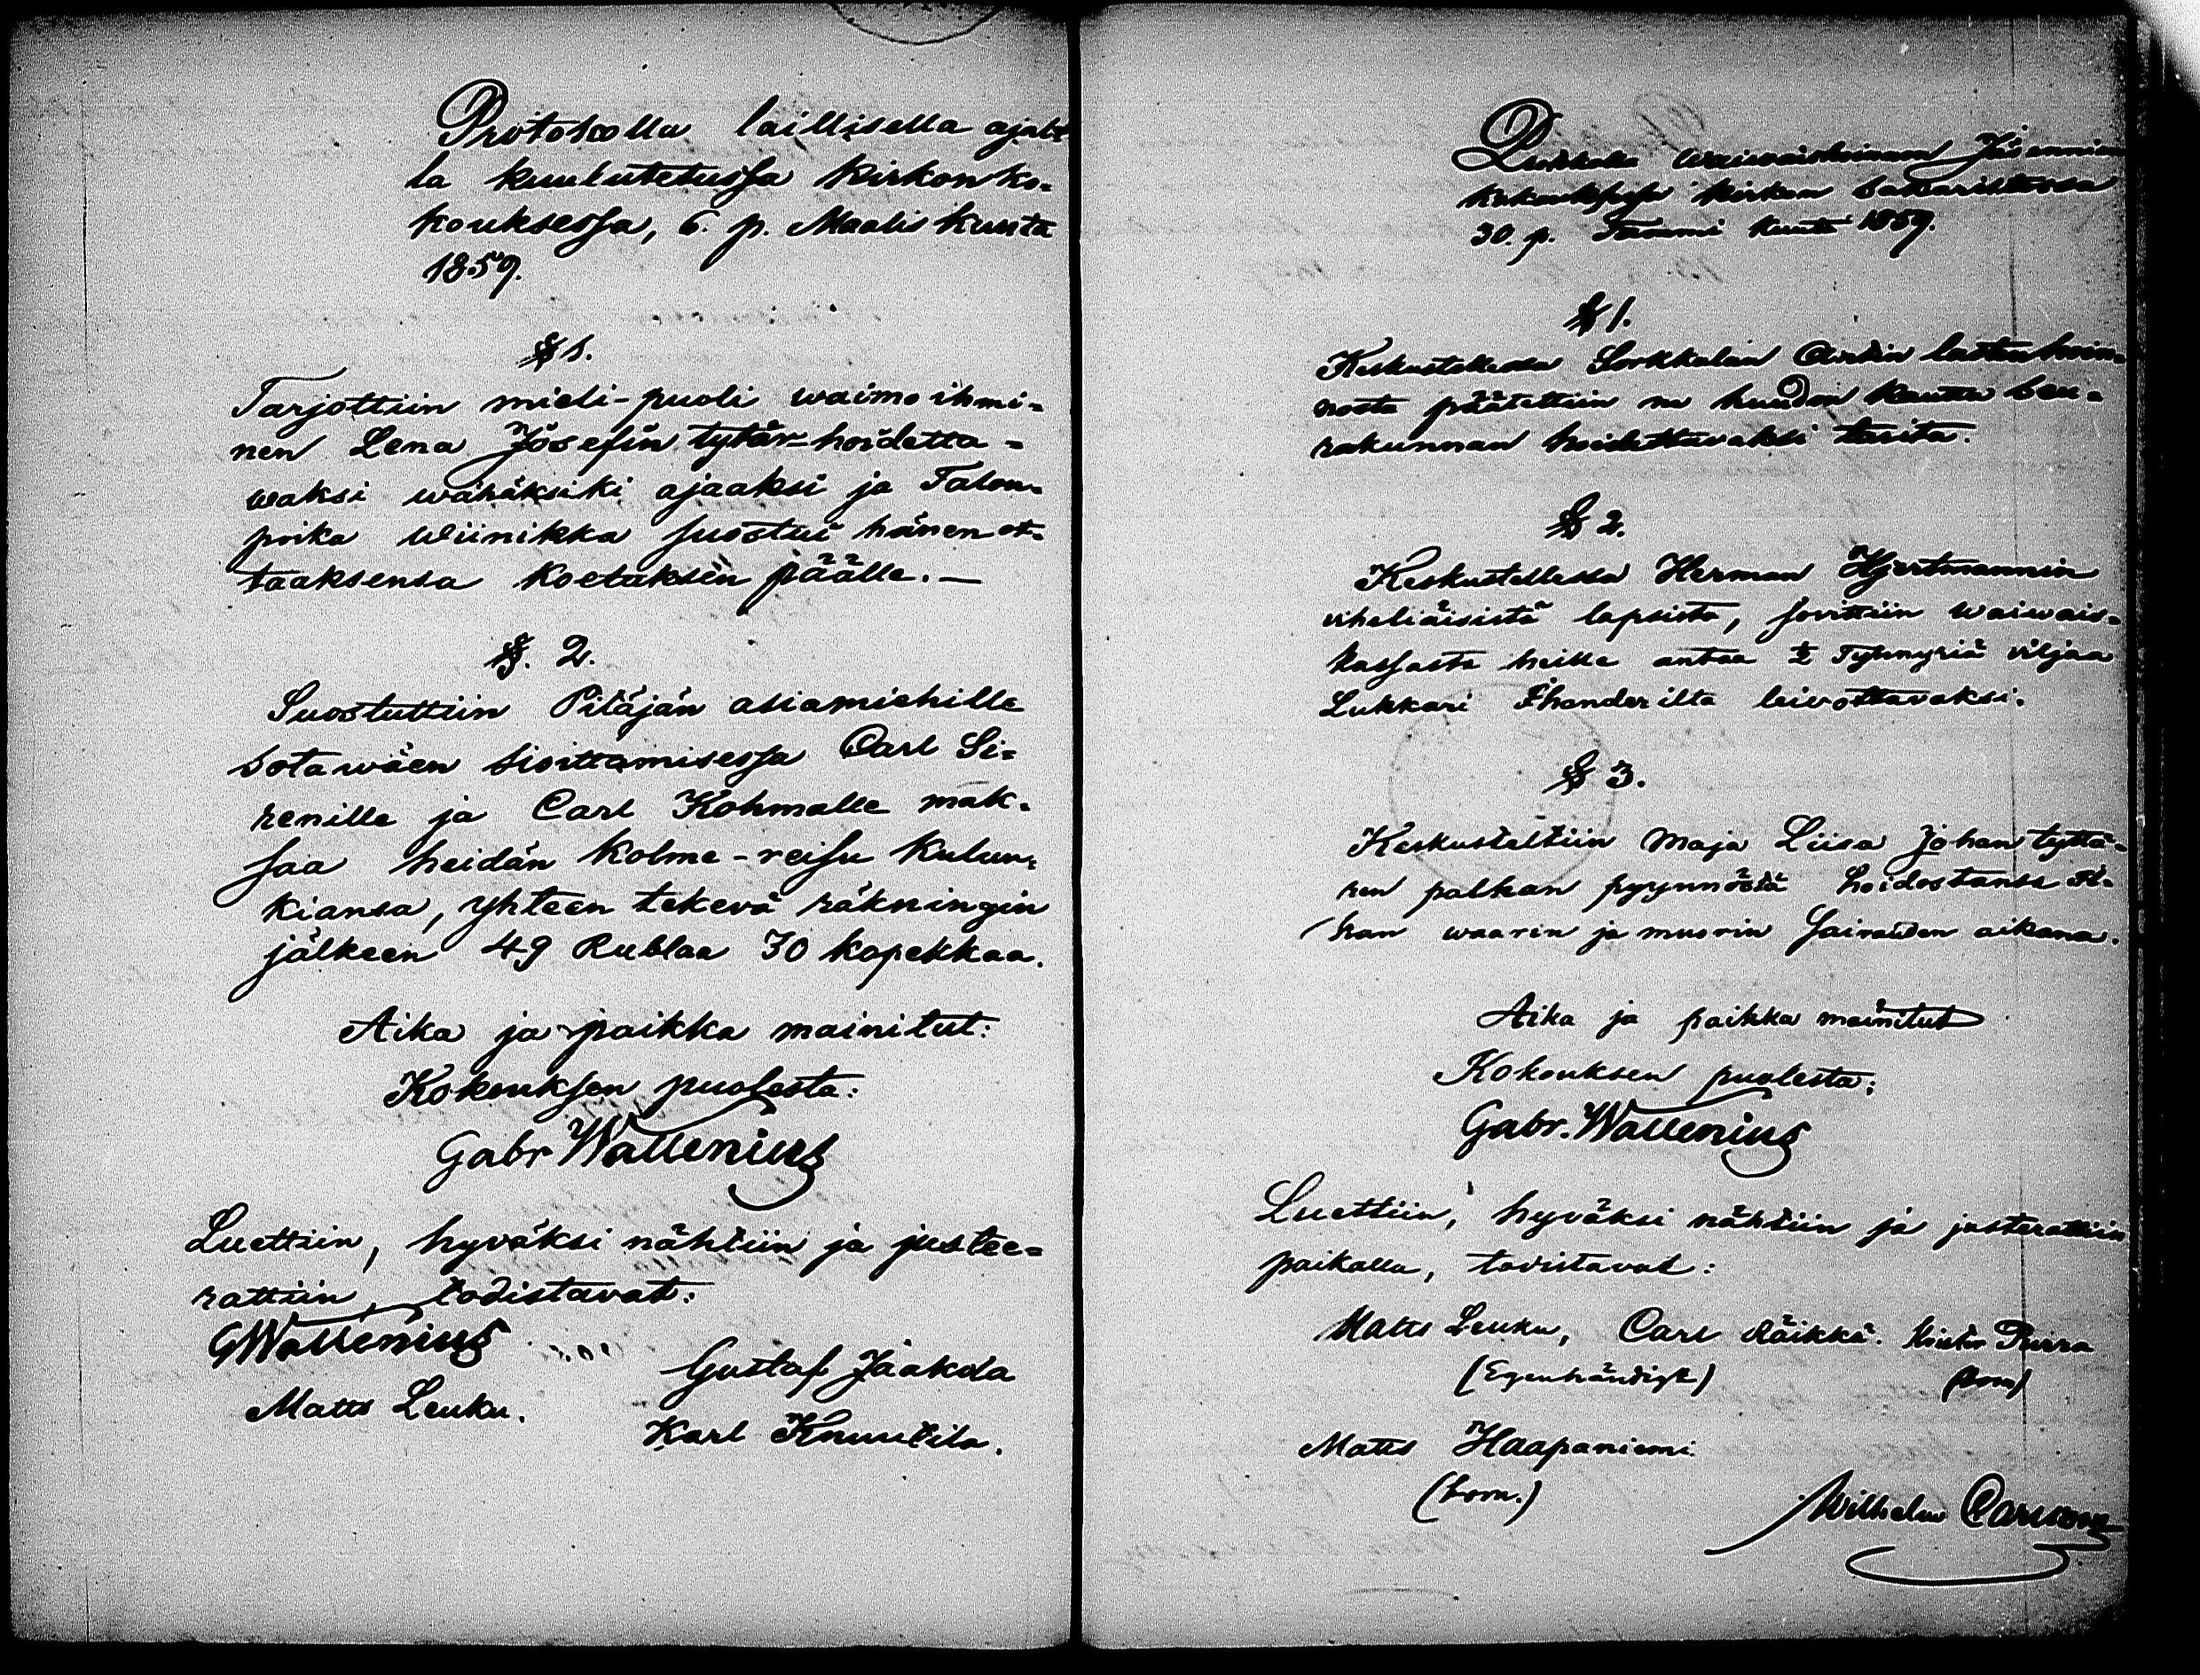 Protokolla laillisella ajal-
la kuulutetussa Kirkonko=
kouksessa, 6. p. Maalis kuuta
1859.
§ 1.
Tarjottiin mieli-puoli waimo ihmi=
nen Lena Josefin tytär hoidetta=
waksi wähäksiki ajaaksi ja Talon=
poika Wiinikka suostui hänen ot=
taaksensa koetuksen päälle. —
§. 2.
Suostuttiin Pitäjän asiamiehille
sotawäen sioittamisessa Carl Si=
renille ja Carl Kohmalle mak=
saa heidän kolme-reisu kulun=
kiansa, yhteen tekevä räkningin
jälkeen 49 Rublaa 30 kopekkaa.
Aika ja paikka mainitut:
Kokouksen puolesta:
Gabr Wallenius
Luettiin, hyväksi nähtiin ja justee=
rattiin, todistavat:
GWallenius
Gustaf Jaakola
Matts Leuku.
Karl Knuutila.
waiwaishoinnon Jäsennin
kirkon Sakaristossa
30. p. Tammi kuuta 1859.
§ 1.
Keskustellessa Sorkkalan lasten hoin=
nosta päätettiin ne huudon kautta Seu=
rakunnan hoidettavaksi tarita.
§ 2.
Keskustellessa Herman Hjertmannin
viheliäisistä lapsista, sovittiin waiwais=
kassasta heille antaa ½ Tynnyriä viljaa
Lukkari Thanderilta leivottavaksi.
§ 3.
Keskusteltiin Maja Liisa Johan tyttä=
ren palkan pyynnöstä hoidostansa
waarin ja muorin sairauden aikana.
Aika ja paikka mainitut
Kokouksen puolesta:
Gabr. Wallenius
Luettiin, hyväksi nähtiin ja justerattiin
paikalla, todistavat:
Matts Leuku, Carl Räikkä. Purra
(Egenhändigt) (bom)
Matts Haapaniemi.
(bom.)
Wilhelm Carlsson